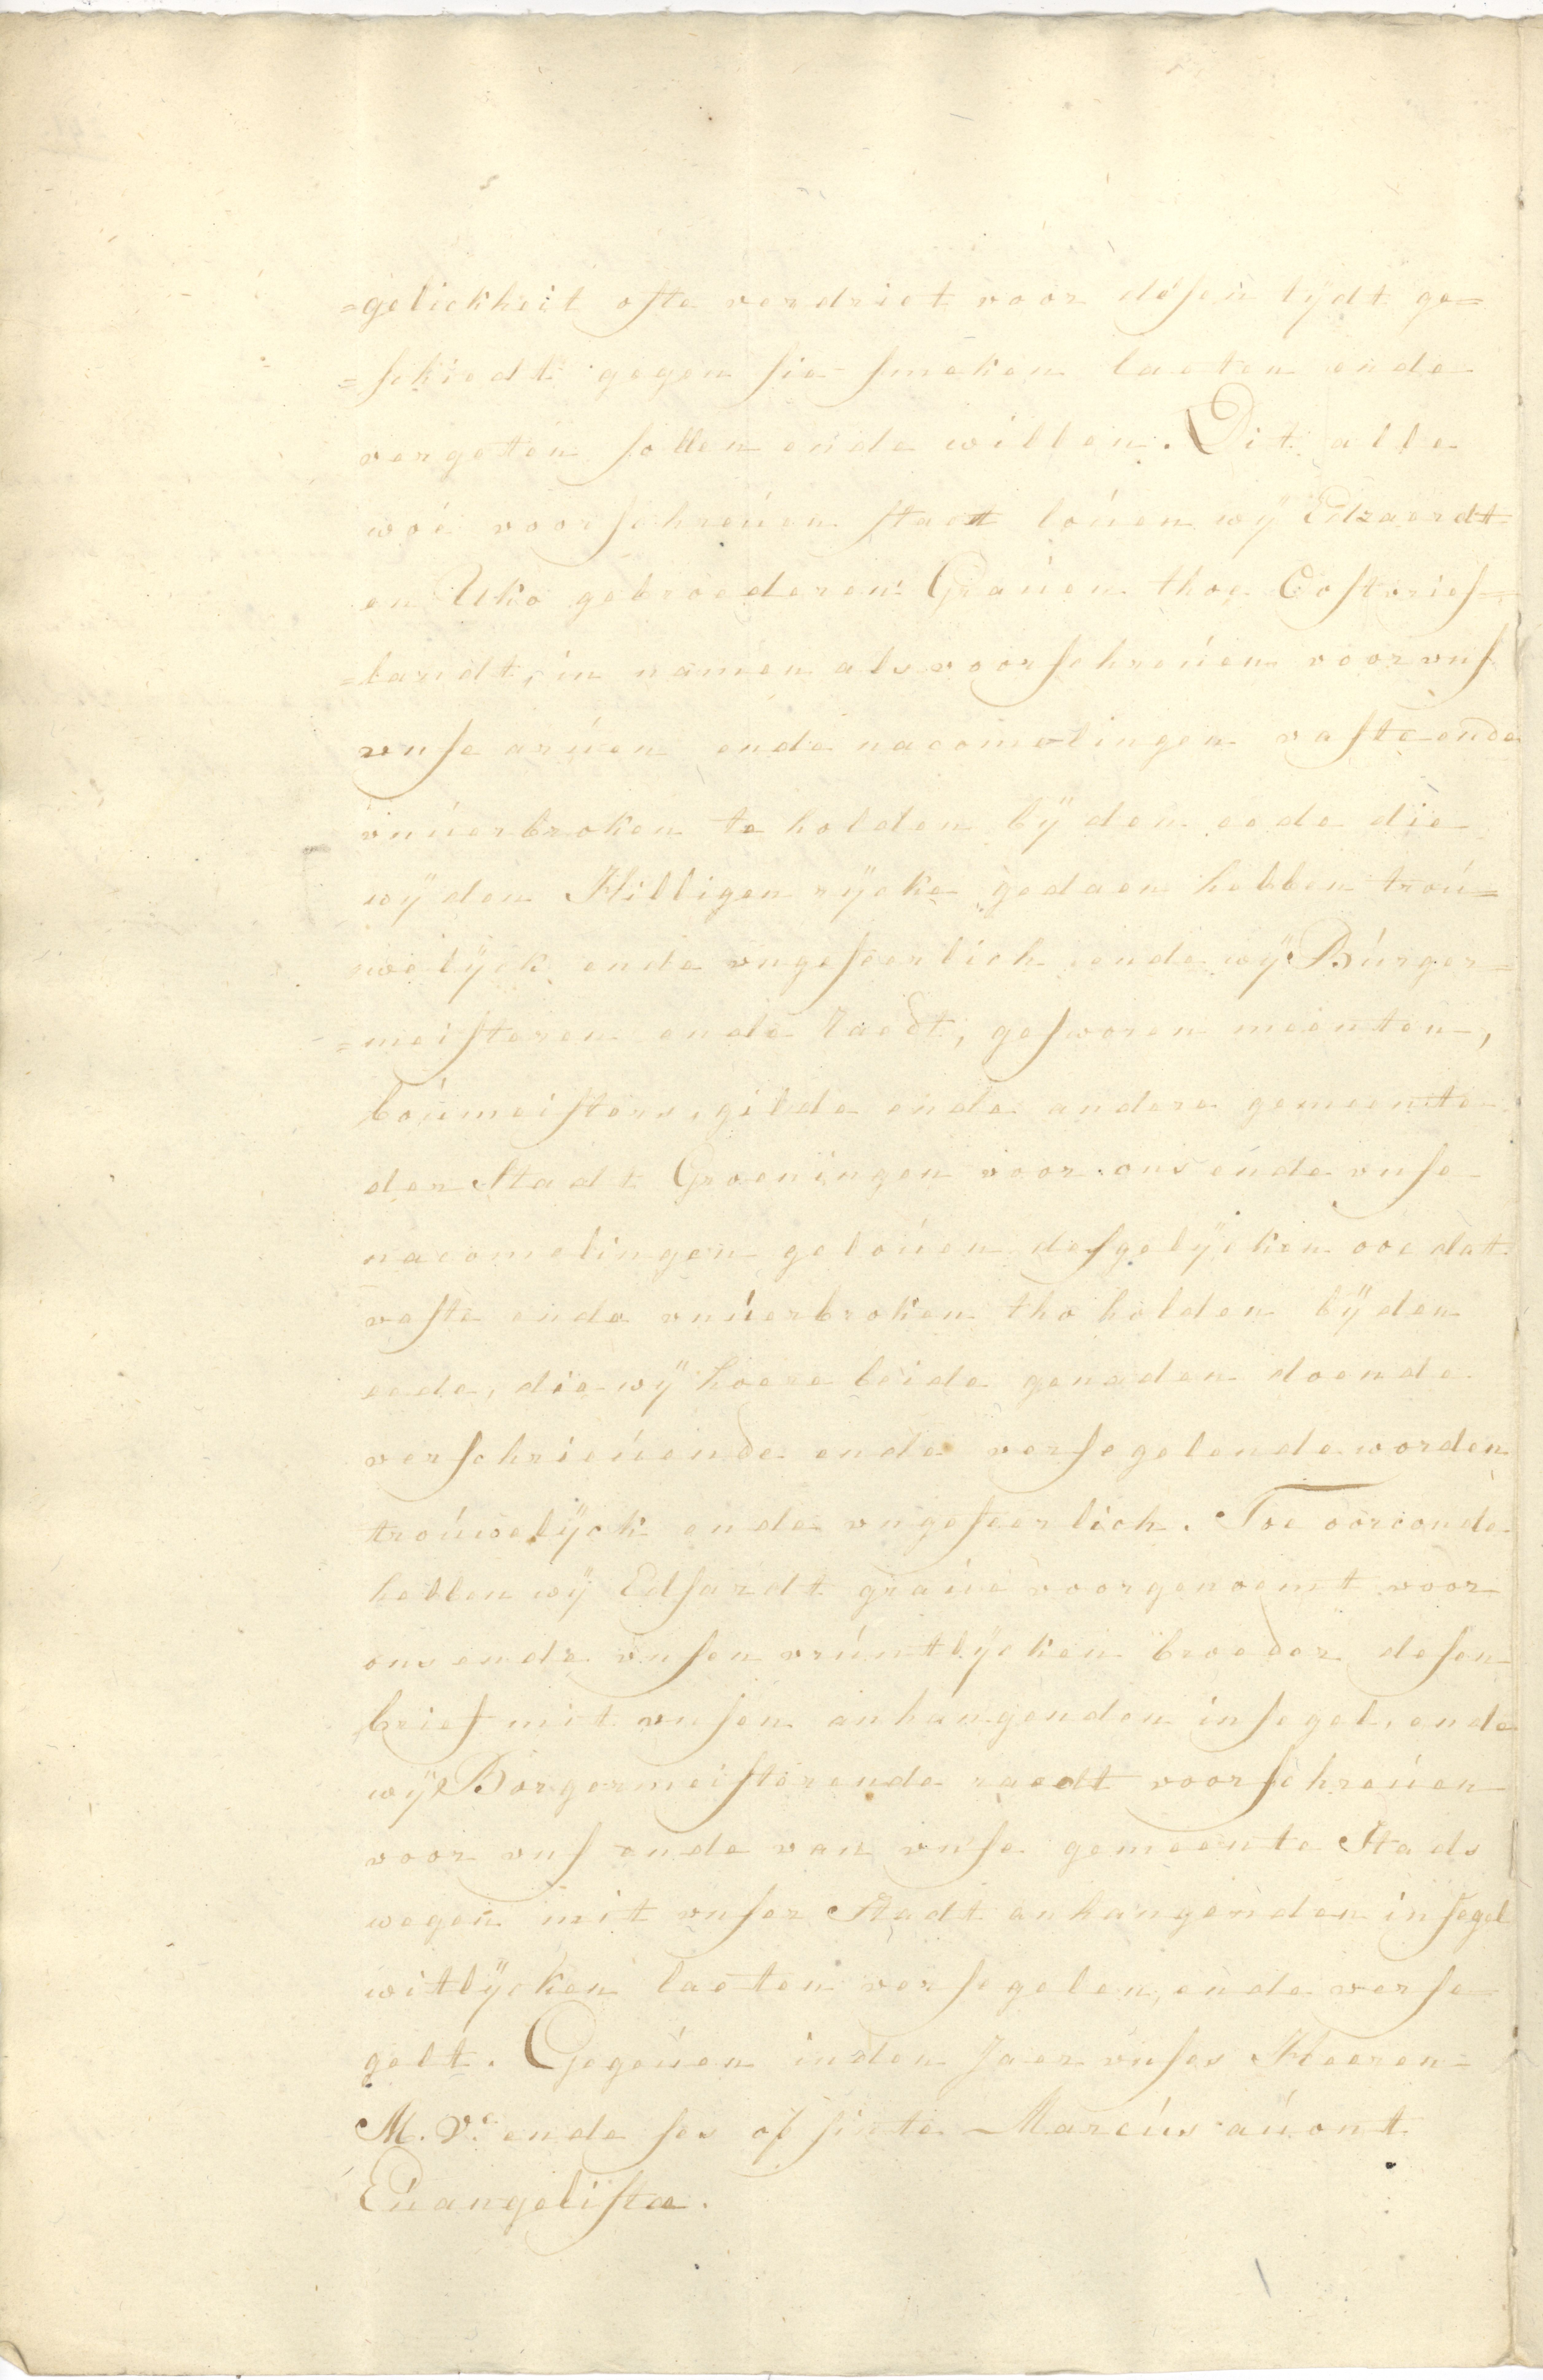 =gelickheit ofte verdriet voor desen tÿdt ge=
=schiedt gegen sie smeken laeten ende
vergeten sollen ende willen. Dit alle
woe voorschreúen staet loúen wÿ Edzaerdt
en Uko gebroederen Graúen thoe Oostvries=
=landt, in namen als voorschreúen voor vns
vnse arúen ende nacomelingen vaste ende
vnúerbroken te holden bÿ den eede die
wÿ den Hilligen rÿcke gedaen hebben troú=
welÿck ende vngefeerlich ende wÿ Búrger=
=meisteren ende raedt, gesworen meenten,
boúmeisters, gilde ende andere gemeente
der Stadt Groeningen voor ons ende vnse
nacomelingen geloúen desgelÿcken ooc dat
vaste ende vnúerbroken tho holden bÿ den
eede, die wÿ hoere beide genaden doende
verschrieúende ende versegelende worden
troúwelÿck ende vngefeerlich. Toe oorconde
hebben wÿ Edsardt graúe voorgenoemt voor
ons ende vnsen vrúntlÿcken broeder desen
brief mit vnsen anhangenden insegel, ende
wÿ Borgermeister ende raedt voorschreúen
voor vns ende van vnse gemeente Stads
wegen mit vnser Stadt anhangenden insegel
witlÿcken laeten versegelen, ende verse
gelt. Gegeúen in den Jaer vnses Heeren
M. Vc. ende ses op sinte Marcús aúont
Eúangelistae.